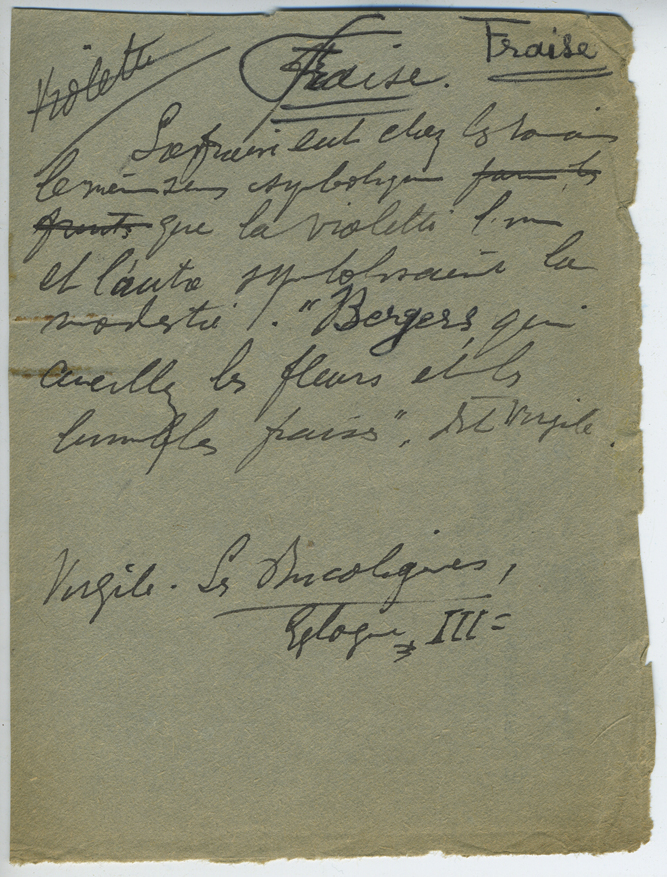 Violette
Fraise. Fraise
La fraise eut chez les romains
le même sens symbolique parmi les
fruits que la violette l'une
et l'autre symbolisaient la
modestie. "Bergers, qui
cueillez les fleurs et les
humbles fraises", dit Virgile.
Virgile - Les Bucoliques,
Eglogue III =